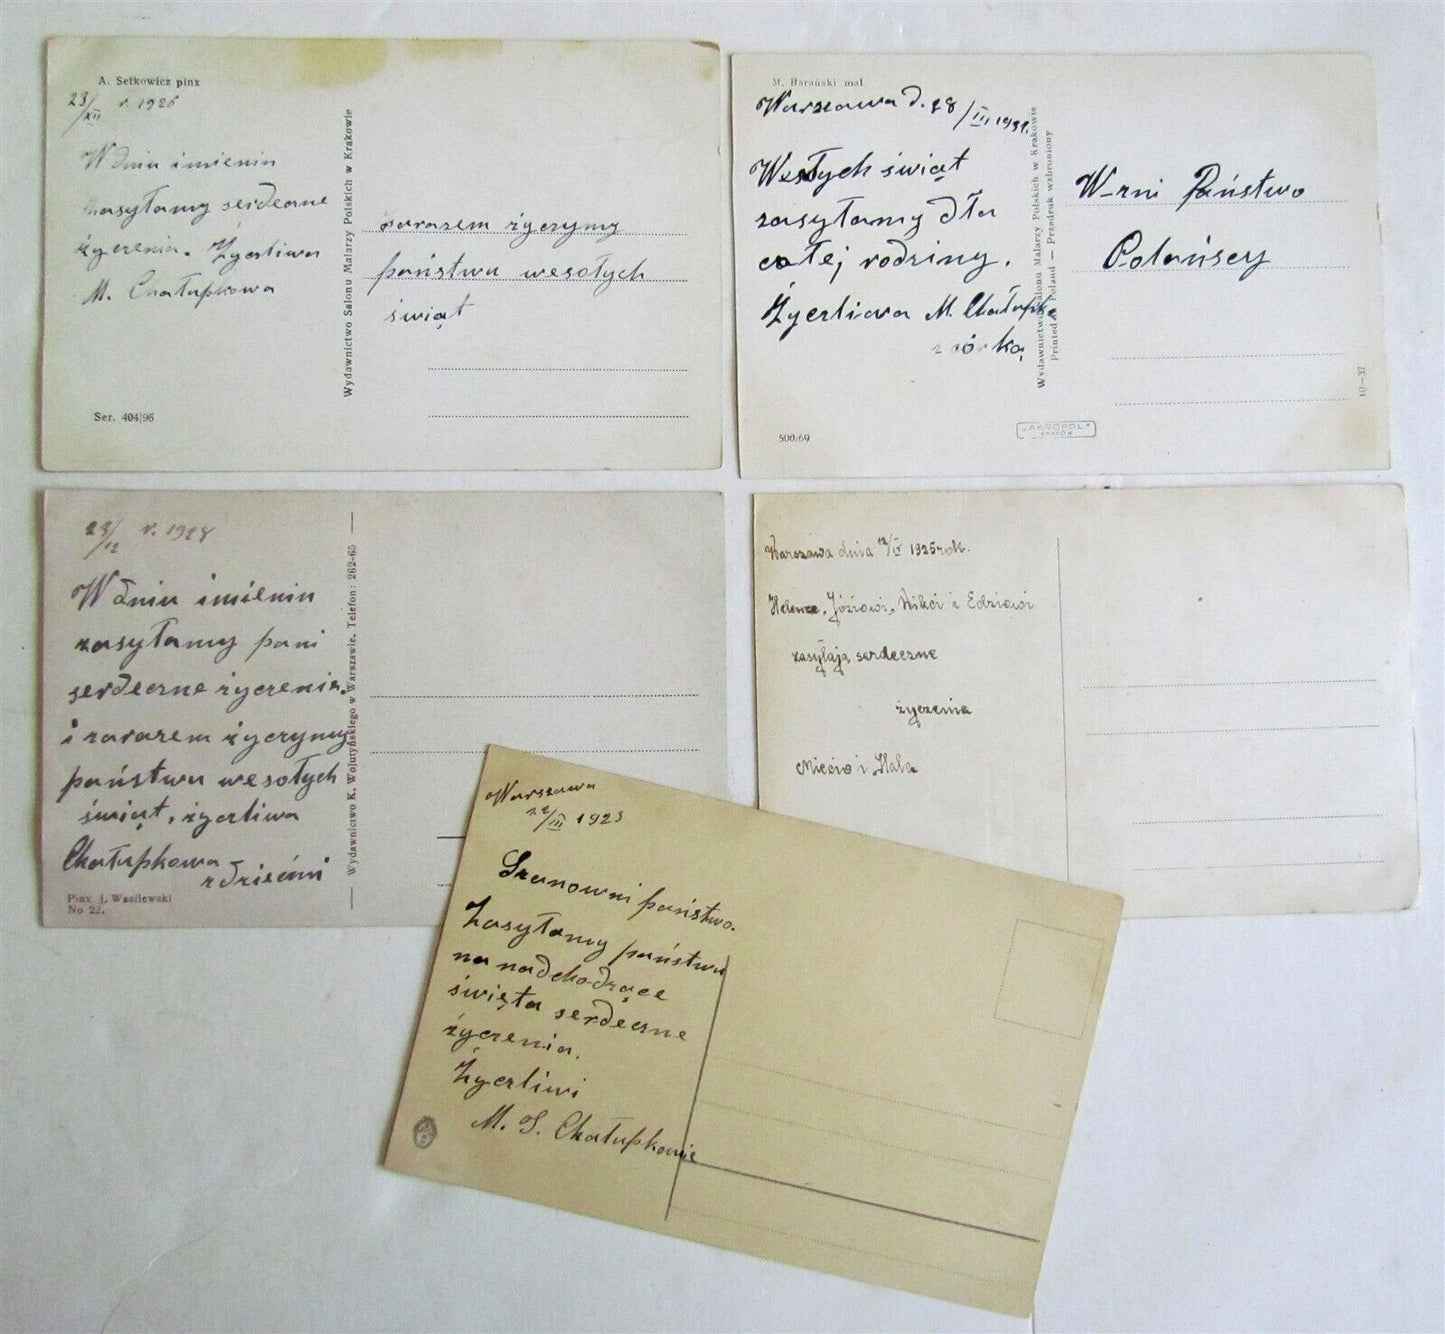 A. Setkowicz pinx
23/XII r. 1926
W dniu imienin
zasyłamy serdeczne
życzenia. Życzliwa
M. Chałupkowa
Ser. 404/96
Wydawnictwo Salonu Malarzy Polskich w Krakowie
zarazem życzymy
państwu wesołych
świąt
M. Barański mal.
Warszawa d. 28/III 1937.
Wesołych świąt
zasyłamy dla
całej rodziny.
Życzliwa M. Chałupk
z córką
500/69
"AKROPOL"
KRAKÓW
Wydawnictwo Salonu Malarzy Polskich w Krakowie
Printed in Poland — Przedruk wzbroniony
W-rni Państwo
Polańscy
10—37
23/12 r. 1928
W dniu imienin
zasyłamy pani
serdeczne życzenia.
i zarazem życzymy
państwu wesołych
świąt, życzliwa
Chałupkowa
z dziećmi
Pinx J. Wasilewski
No 22.
Wydawnictwo K. Wojutyńskiego w Warszawie. Telefon: 262-65
Warszawa dnia 12/IV 1925 rok.
Helence, Józiowi, Wikci i Edziowi
zasyłają serdeczne
życzenia
Miecio i Hala
Warszawa
22/III 1923
Szanowni państwo.
Zasyłamy państwu
na nadchodzące
święta serdeczne
życzenia.
Życzliwi
M. S. Chałupkowie